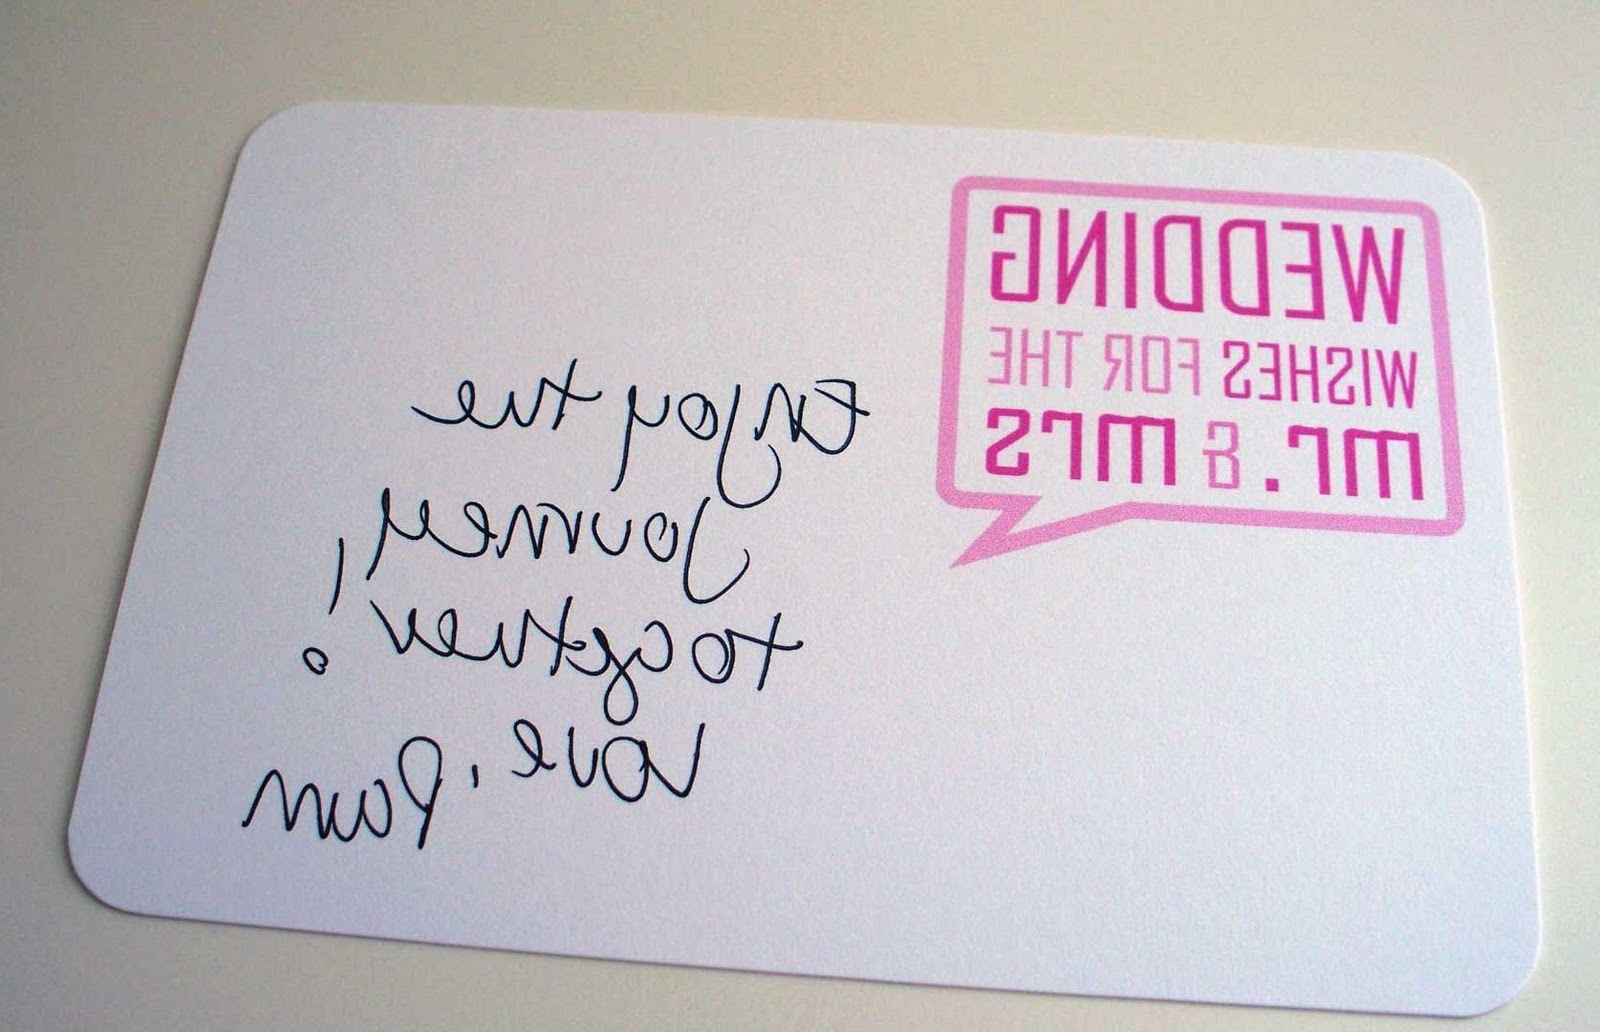 WEDDING
WISHES FOR THE
mr. & mrs
Enjoy the
journey,
together!
Love, Pam